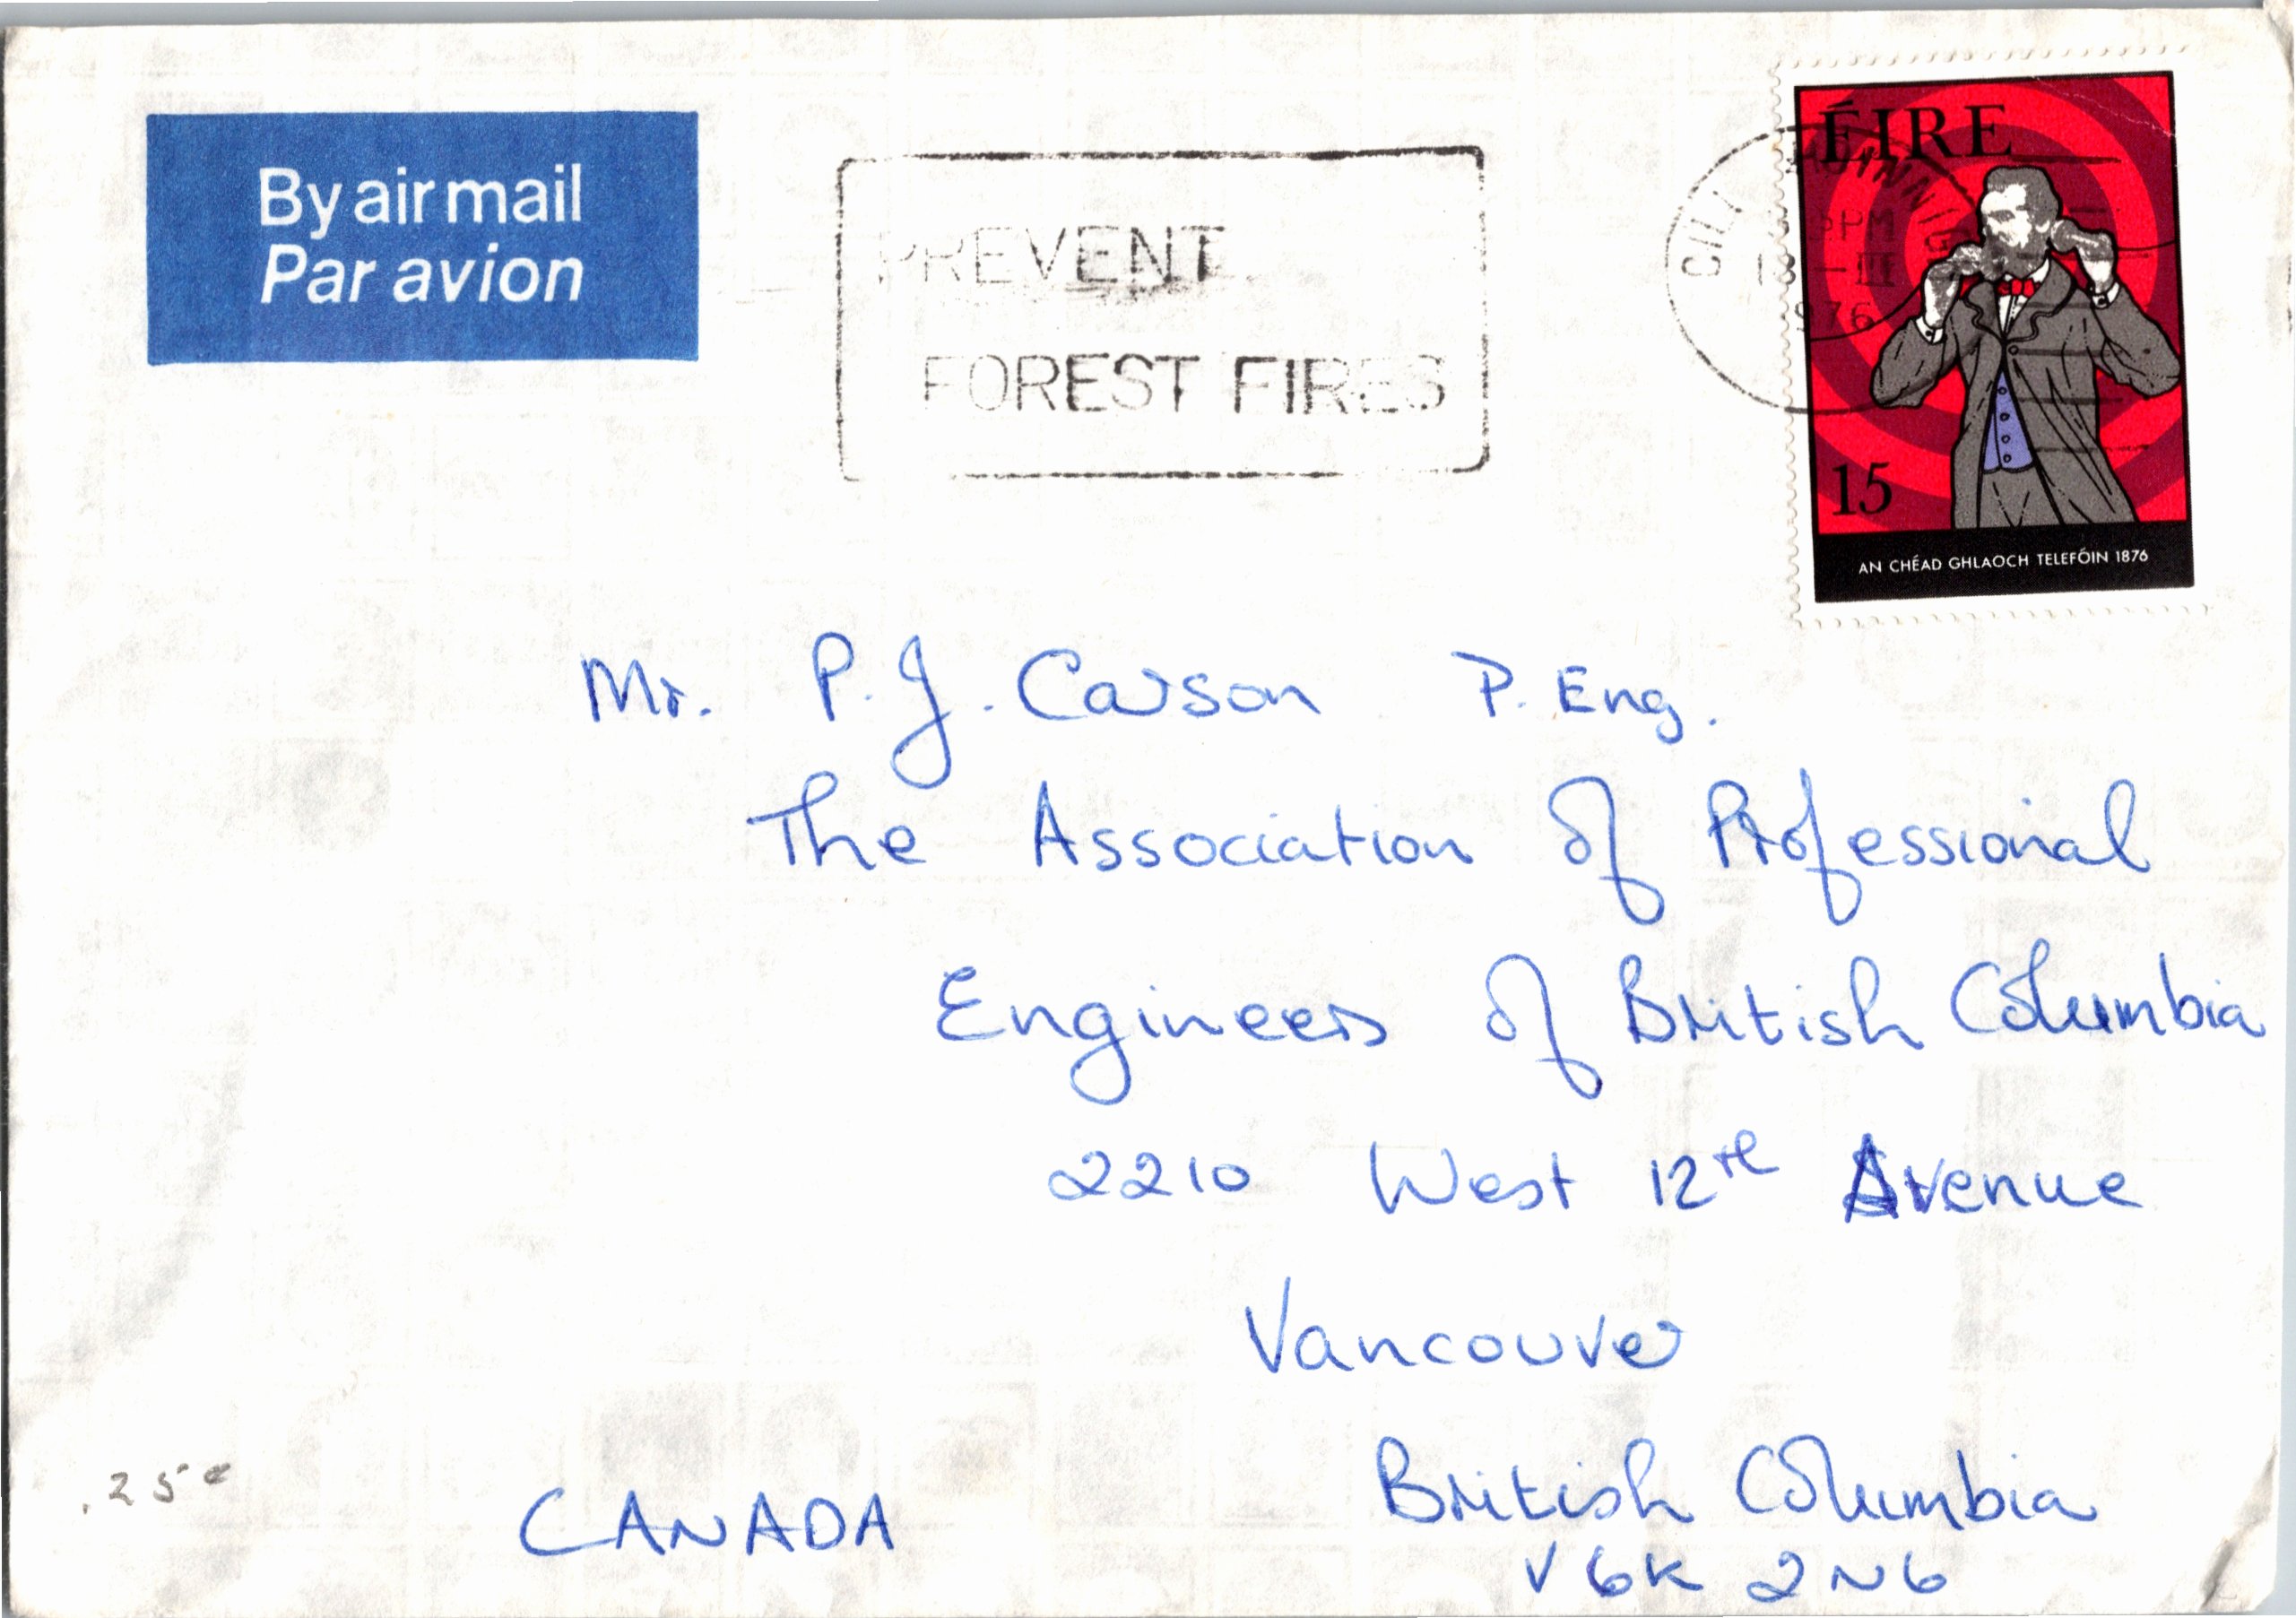 By air mail
Par avion
PREVENT
FOREST FIRES
CILL AINNIGH
PM
13 - III
1976
ÉIRE
15
AN CHÉAD GHLAOCH TELEFÓIN 1876
Mr. P. J. Carson P. Eng.
The Association of Professional
Engineers of British Columbia
2210 West 12th Avenue
Vancouver
British Columbia
V6K 2N6
CANADA
.25c